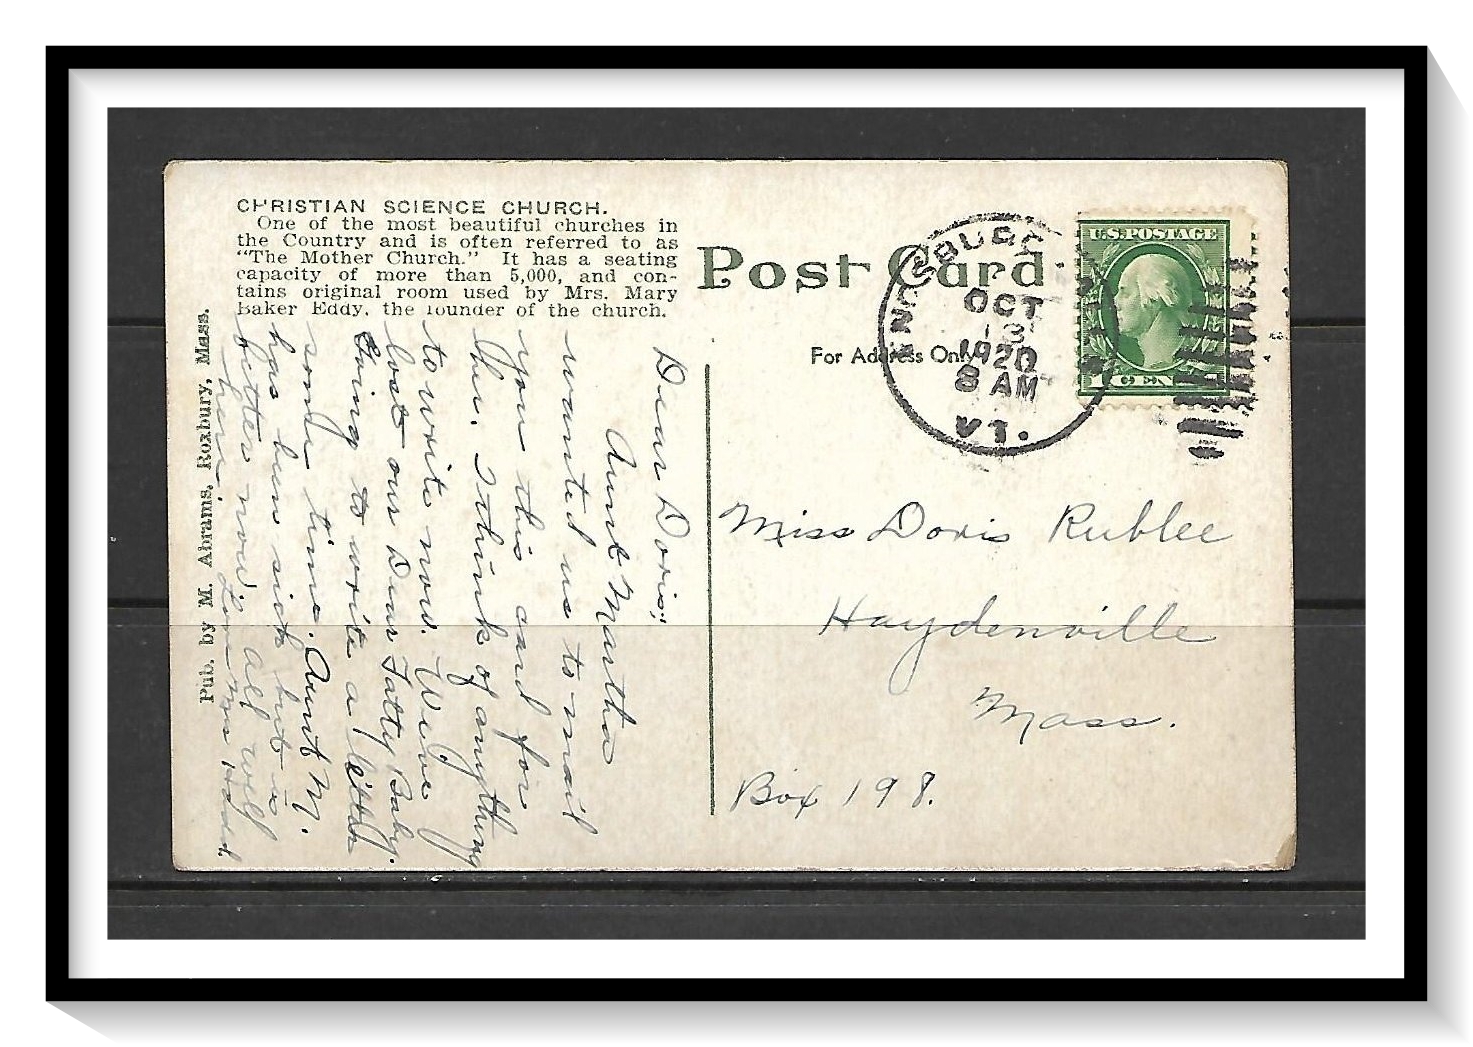 CHRISTIAN SCIENCE CHURCH.
One of the most beautiful churches in
the Country and is often referred to as
"The Mother Church." It has a seating
capacity of more than 5,000, and con-
tains original room used by Mrs. Mary
Baker Eddy, the founder of the church.
Pub. by M. Abrams, Roxbury, Mass.
Post Card
For Address Only
ENOSBURG
OCT
13
1920
8 AM
VT.
U.S. POSTAGE
1 CENT 1
Dear Doris;
Aunt Martha
wanted me to mail
you this card for
her. I think of anything
to write now. We've
lost our Dear Fatty Baby.
Going to write a letter
some time. Aunt M.
has been sick but is
better now. All well
here. Love
Miss Doris Rublee
Haydenville
Mass.
Box 198.